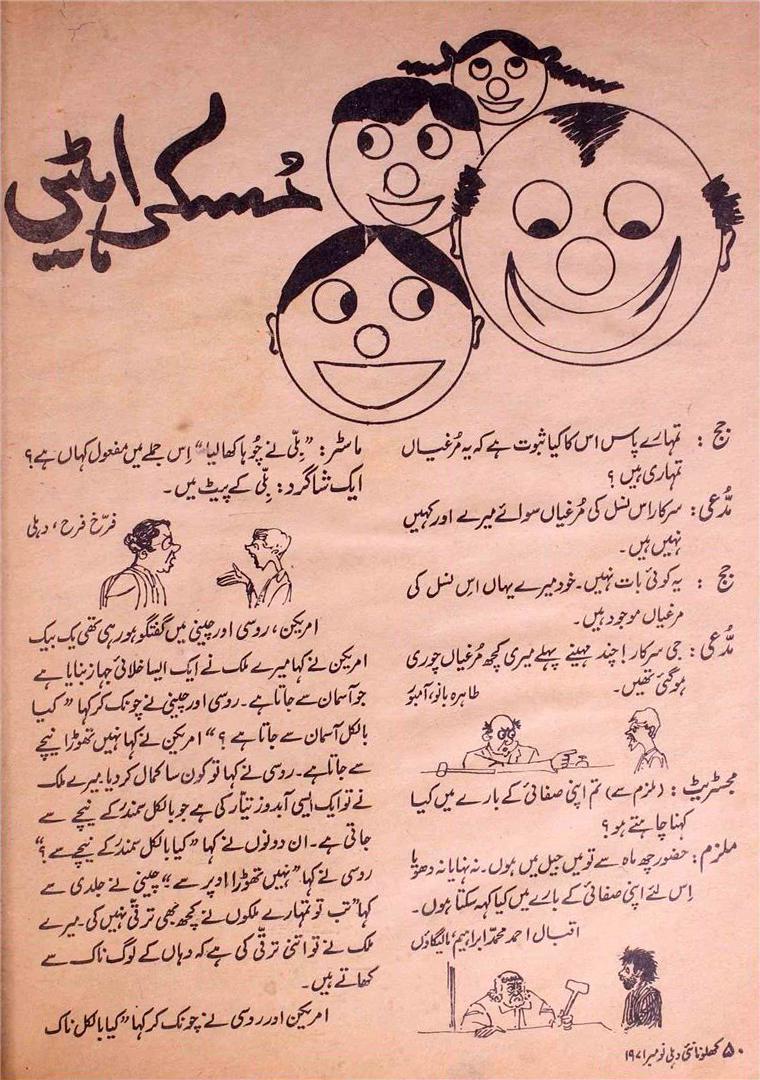 مُسکراہٹیں
جج : تمہارے پاس اس کا کیا ثبوت ہے کہ یہ مُرغیاں
تمہاری ہیں ؟
مُدّعی: سرکار اس نسل کی مُرغیاں سوائے میرے اور کہیں
نہیں ہیں۔
جج : یہ کوئی بات نہیں۔ خود میرے یہاں اِس نسل کی
مرغیاں موجود ہیں۔
مُدّعی: جی سرکار! چند مہینے پہلے میری کچھ مُرغیاں چوری
ہوگئی تھیں۔ طاہرہ بانو، آمبور
مجسٹریٹ : (ملزم سے) تم اپنی صفائی کے بارے میں کیا
کہنا چاہتے ہو؟
ملزم: حضور چھ ماہ سے تو میں جیل میں ہوں۔ نہ نہایا نہ دھویا
اِس لئے اپنی صفائی کے بارے میں کیا کہہ سکتا ہوں۔
اقبال احمد محمد ابراہیم، مالیگاؤں
ماسٹر: "بلّی نے چُوہا کھا لیا" اِس جملے میں مفعول کہاں ہے؟
ایک شاگرد: بِلّی کے پیٹ میں۔
فرّخ فرح، دہلی
امریکن، روسی اور چینی میں گفتگو ہو رہی تھی یک بیک
امریکن نے کہا میرے ملک نے ایک ایسا خلائی جہاز بنایا ہے
جو آسمان سے جاتا ہے۔ روسی اور چینی نے چونک کر کہا "کیا
بالکل آسمان سے جاتا ہے؟" امریکن نے کہا نہیں تھوڑا نیچے
سے جاتا ہے۔ روسی نے کہا تو کون سا کمال کر دیا۔ میرے ملک
نے تو ایک ایسی آبدوز تیار کی ہے جو بالکل سمندر کے نیچے سے
جاتی ہے۔ ان دونوں نے کہا "کیا بالکل سمندر کے نیچے سے؟"
روسی نے کہا "نہیں تھوڑا اوپر سے" چینی نے جلدی سے
کہا "تب تو تمہارے ملکوں نے کچھ بھی ترقی نہیں کی۔ میرے
ملک نے تو اتنی ترقّی کی ہے کہ وہاں کے لوگ ناک سے
کھاتے ہیں۔
امریکن اور روسی نے چونک کر کہا "کیا بالکل ناک
۵۰ کھلونا نئی دہلی نومبر ۱۹۷۱